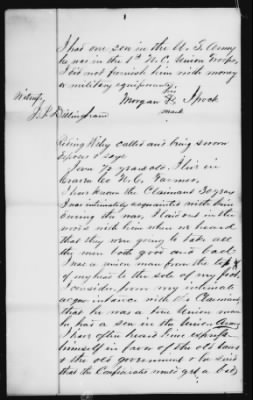 1
I had one son in the U. S. Army
he was in the 1st N.C. Union Troops,
I did not furnish him with money
or military equipments.
his
Witness, Morgan X Ipock
mark
J. L. Dillingham
Riley called and being sworn
deposes & says
I am 70 years old. I live in
Craven Co N.C. Farmer,
I have known the Claimant 30 years
I was intimately acquainted with him
during the war, I laid out in the
woods with him when we heard
that they were going to take all
the men both good and bad.
I was a union man from the top
of my head to the sole of my foot,
I consider from my intimate
acquaintance with the Claimant,
that he was a true Union man
he had a son in the Union Army
I have often heard him express
himself in favor of the old laws
& the old government & he said
that the Confederates must get a bad